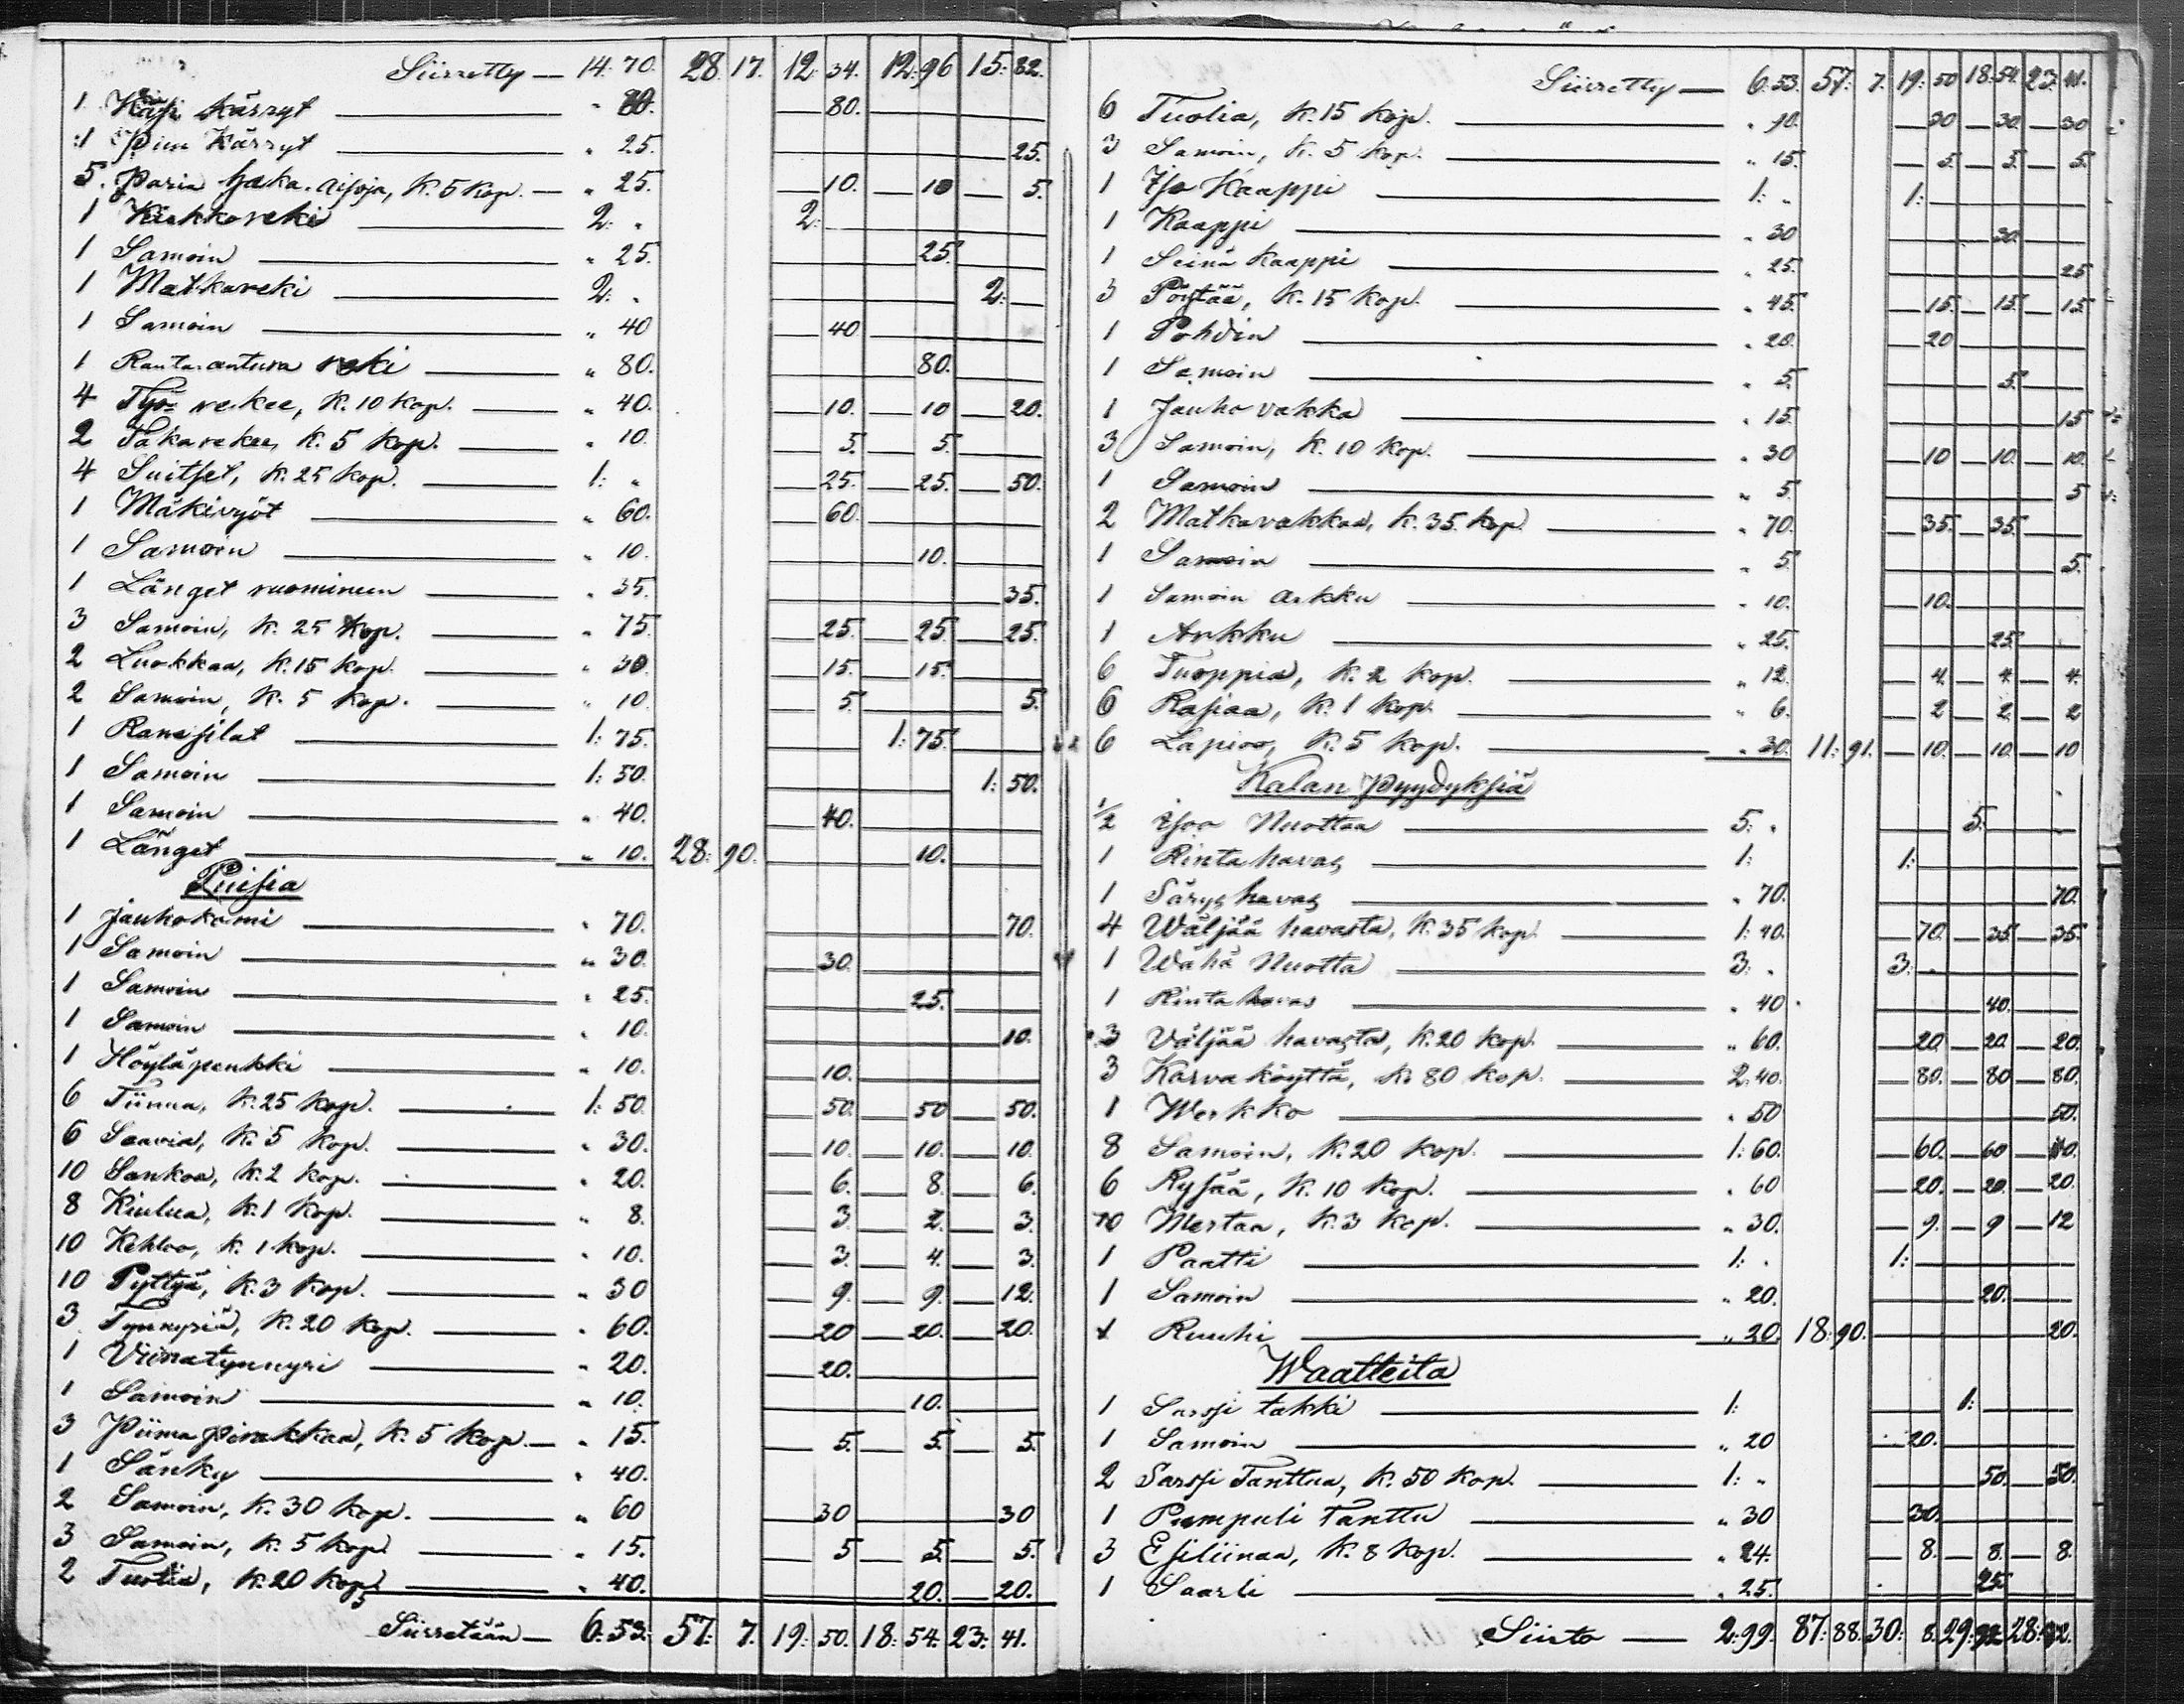 Siirretty — 14. 70. 28. 17. 12. 34. 12. 96 15. 82.
1 Käsi kärryt — „ 80. 80.
1 Pien Kärryt — „ 25. 25.
5. Paria haka-aisoja, K. 5 kop. — „ 25. 10. 10 5.
1 Kirkkoreki — 2: „ 2:
1 Samoin — „ 25. 25.
1 Matkareki — 2: „ 2:
1 Samoin — „ 40 40
1 Rauta-antura reki — „ 80. 80.
4 Työ rekee, K. 10 kop. — „ 40. 10. 10 20.
2 Takarekee, K. 5 kop. — „ 10. 5. 5.
4 Suitset, K. 25 kop. — 1: „ 25. 25. 50.
1 Mäkivyöt — „ 60. 60.
1 Samoin — „ 10. 10.
1 Länget ruomineen — „ 35. 35.
3 Samoin, K. 25 kop. — „ 75. 25. 25. 25.
2 Luokkaa, K. 15 kop. — „ 30 15. 15.
2 Samoin, K. 5 kop. — „ 10. 5. 5.
1 Ranssilat — 1: 75. 1: 75.
1 Samoin — 1: 50. 1: 50.
1 Samoin — „ 40. 40.
1 Länget — „ 10. 28: 90. 10.
Puisia
1 Jauhokomi — „ 70. 70.
1 Samoin — „ 30. 30.
1 Samoin — „ 25. 25.
1 Samoin — „ 10. 10.
1 Höyläpenkki — „ 10. 10.
6 Tiinua, K. 25 kop. — 1: 50. 50. 50 50.
6 Saavia, K. 5 kop. — „ 30. 10. 10. 10.
10 Sankoa, K. 2 kop. — „ 20. 6. 8. 6.
8 Kiulua, K. 1 kop. — „ 8. 3. 2. 3.
10 Kehloo, K. 1 kop. — „ 10. 3. 4. 3.
10 Pyttyä, K. 3 kop. — „ 30 9. 9. 12.
3 Tynnyriä, K. 20 kop. — „ 60. 20 20. 20.
1 Viinatynnyri — „ 20. 20.
1 Samoin — „ 10. 10.
3 Piimapirakkaa, K. 5 kop. — „ 15. 5. 5. 5.
1 Sänky — „ 40.
2 Samoin, K. 30 kop. — „ 60 30 30
3 Samoin, K. 5 kop. — „ 15. 5 5. 5.
2 Tuolia, K. 20 kop. — „ 40. 20. 20.
Siirretään — 6. 53. 57: 7. 19: 50. 18: 54. 23: 41.
Siirretty — 6. 53. 57: 7. 19: 50 18: 54. 23. 41.
6 Tuolia, K. 15 kop. — „ 90. 30 30. 30
3 Samoin, K. 5 kop. — „ 15. 5. 5. 5.
1 Iso Kaappi — 1: „ 1:
1 Kaappi — „ 30 30.
1 Seinä kaappi — „ 25. 25
3 Pöytää, K. 15 kop. — „ 45. 15. 15. 15
1 Pohdin — „ 20. 20
1 Samoin — „ 5. 5.
1 Jauho vakka — „ 15. 15
3 Samoin, K. 10 kop. — „ 30 10 10. 10.
1 Samoin — „ 5. 5
2 Matkavakkaa, K. 35 kop. — „ 70. 35. 35.
1 Samoin — „ 5. 5.
1 Samoin arkku — „ 10. 10.
1 Arkku — „ 25. 25.
6 Tuoppia, K. 2 kop. — „ 12. 4. 4. 4.
6 Rasiaa, K. 1 kop. — „ 6. 2 2. 2
6 Lapioo, K. 5 kop. — „ 30. 11: 91. 10. 10. 10
Kalan pyydyksiä
1/2 Isoo Nuottaa — 5: „ 5.
1 Rinta havas — 1: 1:
1 Särys havas — „ 70. 70.
4 Wäljää havasta, K. 35 kop. — 1: 40. 70. 35. 35.
1 Wähä Nuotta — 3: „ 3:
1 Rinta havas — „ 40 40.
3 Väljää havasta, K. 20 kop. — „ 60. 20. 20. 20.
3 Karva köyttä, K. 80 kop. — 2. 40. 80. 80 80.
1 Werkko — „ 50 50.
8 Samoin, K. 20 kop. — 1: 60. 60. 60 40.
6 Rysää, K. 10 kop. — „ 60 20. 20. 20.
10 Mertaa, K. 3 kop. — „ 30. 9. 9 12
1 Paatti — 1: „ 1:
1 Samoin — „ 20. 20.
1 Ruuhi — „ 20. 18: 90. 20.
Waatteita
1 Sarssi takki — 1: 1:
1 Samoin — „ 20 20.
2 Sarssi Tanttua, K. 50 kop. — 1: „ 50. 50.
1 Pumpuli tanttu — „ 30 30.
3 Esiliinaa, K. 8 kop. — „ 24. 8. 8. 8.
1 Saarli — „ 25. 25.
Siirto — 2. 99. 87: 88. 30: 8. 29: 28: